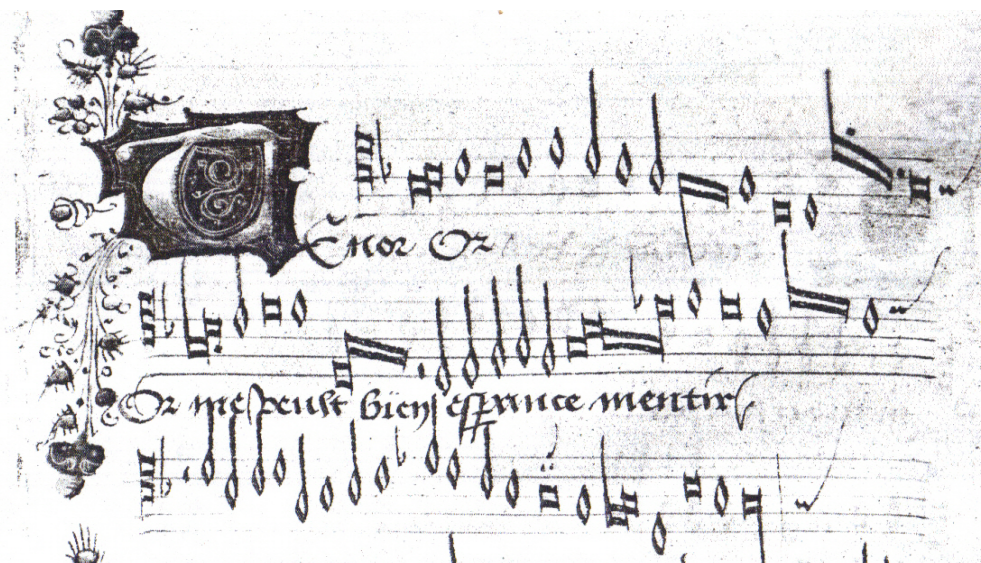 Tenor Or
Or me peult bien esperance mentir